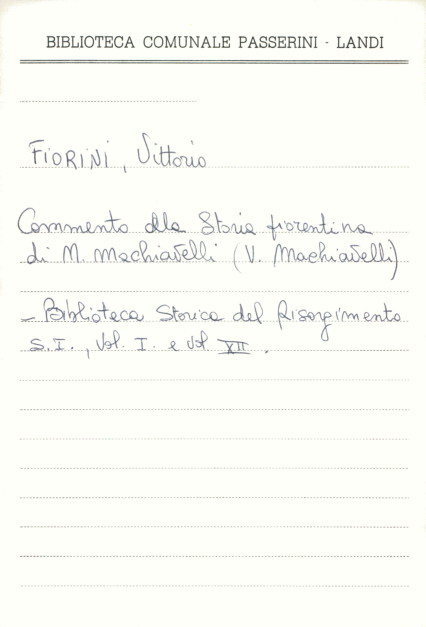 BIBLIOTECA COMUNALE PASSERINI - LANDI
FIORINI, Vittorio
Commento alla Storia fiorentina
di M. Machiavelli (V. Machiavelli)
- Biblioteca Storica del Risorgimento
S.I., Vol. I. e Vol XII.